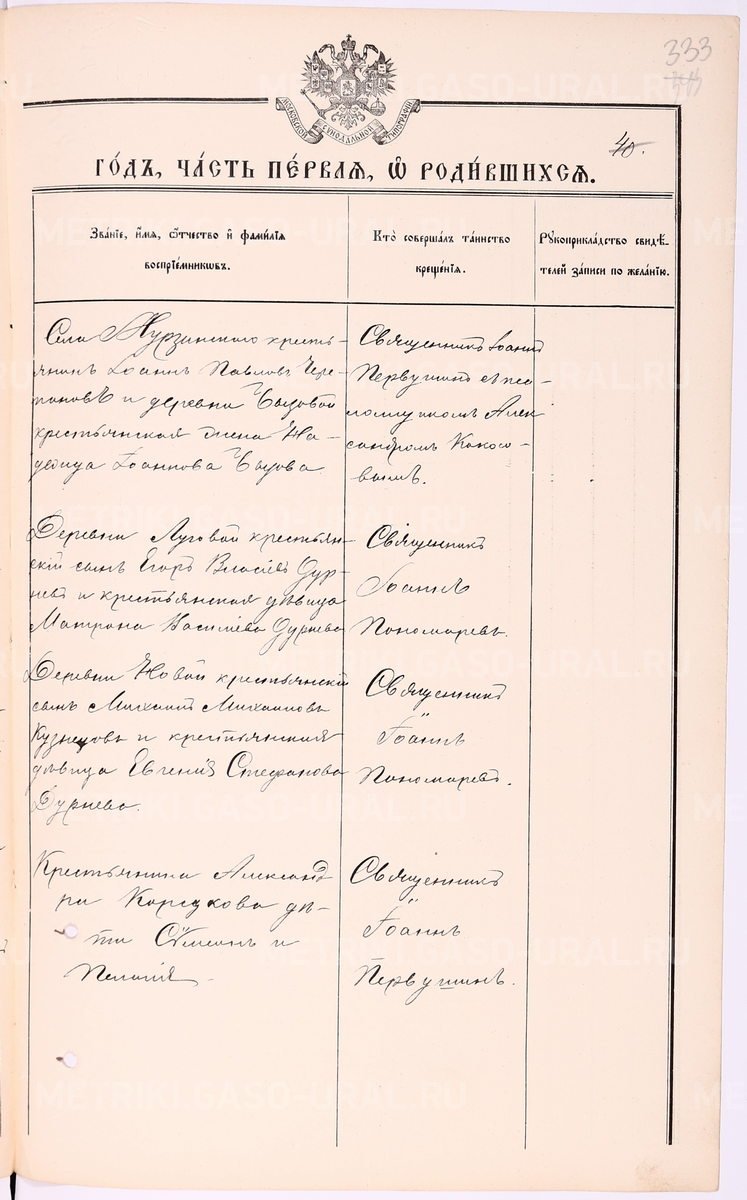 333
40.
МОСКОВСКОЙ СѴНОДАЛЬНОЙ ТИПОГРАФІИ
ГО́ДЪ, ЧА́СТЬ ПЕ́РВАЯ, Ѽ РОДИ́ВШИХСЯ.
Зва́нїе, и́мя, ѻ҆́тчество и҆ фами́лїя
воспрїе́мникѡвъ.
Кто̀ соверша́лъ та́инство
креще́нїя.
Рꙋкоприкла́дство свидѣ́-
телей за́писи по жела́нїю.
Села Мурзинскаго кресть-
янинъ Іоаннъ Павловъ Чере-
пановъ и деревни Бызовой
крестьянская жена На-
дежда Іоаннова Бызова
Священникъ Іоаннъ
Первушинъ съ пса-
ломщикомъ Алек
сандромъ Кокосо-
вымъ.
Деревни Луговой крестьян-
скій сынъ Егоръ Власіевъ Дур-
невъ и крестьянская дѣвица
Матрона Василіева Дурнева
Священникъ
Іоаннъ
Пономаревъ.
Деревни Новой крестьянскій
сынъ Михаилъ Михаиловъ
Кузнецовъ и крестьянская
дѣвица Евгенія Стефанова
Дурнева.
Священникъ
Іоаннъ
Пономаревъ.
Крестьянина Александ
ра Корсукова дѣ-
ти Сѵмеонъ и
Пелагія
Священникъ
Іоаннъ
Первушинъ.
METRIKI.GASO-URAL.RU